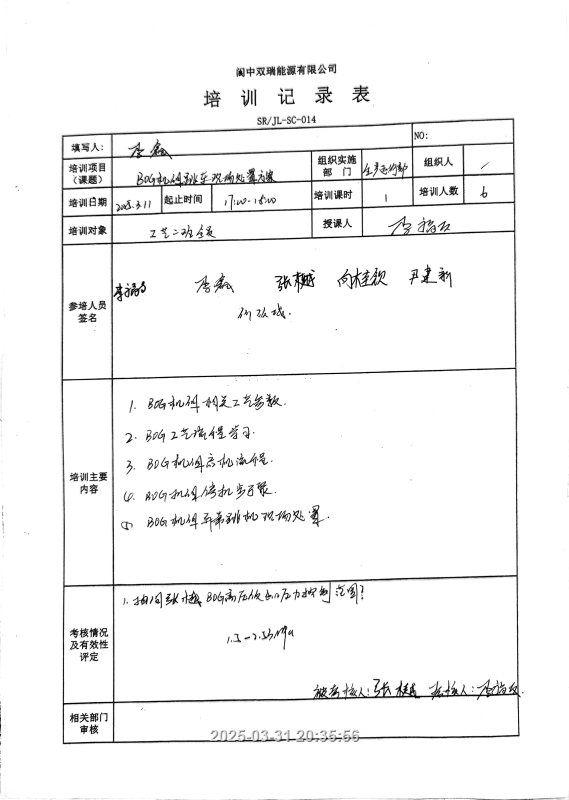 阆中双瑞能源有限公司
培 训 记 录 表
SR/JL-SC-014
填写人： 李鑫 NO：
培训项目（课题） BOG机组跳车现场处置方案 组织实施部 门 生产运行部 组织人 /
培训日期 2025.3.11 起止时间 17:00-18:00 培训课时 1 培训人数 6
培训对象 工艺二班全员 授课人
参培人员签名 李鑫 张樾 向桂颖 尹建新
培训主要内容
1. BOG机组相关工艺参数.
2. BOG工艺流程学习.
3. BOG机组启机流程.
4. BOG机组停机步骤.
5 BOG机组异常跳机现场处置.
考核情况及有效性评定
1. 抽问张樾BOG高压低出口压力控制范围？
1.5-2.35MPa
被考核人：张樾 考核人：
相关部门审核
2025-03-31 20:35:56